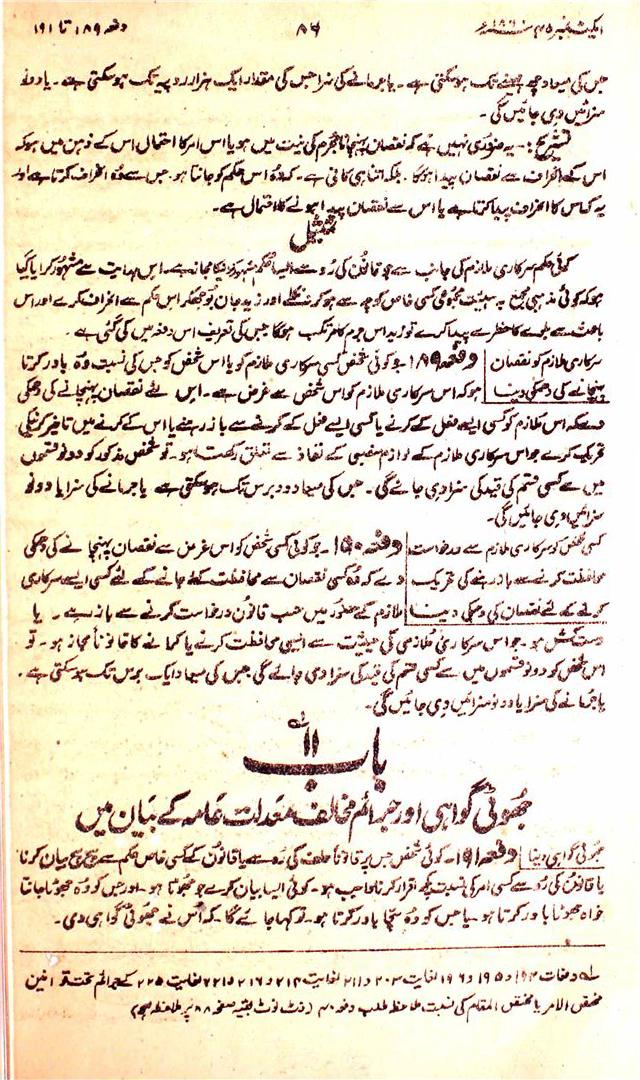 ایکٹ نمبر ۴۵ سنہ ۱۸۶۰ء ۸۶ دفعہ ۱۸۹ تا ۱۹۱
جس کی میعاد چھ مہینے تک ہوسکتی ہے۔ یا جرمانے کی سزا جس کی مقدار ایک ہزار روپیہ تک ہوسکتی ہے۔ یا دونو
سزائیں دی جائیں گی۔
تشریح:۔ یہ ضروری نہیں ہے کہ نقصان پہنچانا مجرم کی نیت میں ہو یا اس امر کا احتمال اس کے ذہن میں ہو کہ
اس کے انحراف سے نقصان پیدا ہوگا۔ بلکہ اتنا ہی کافی ہے۔ کہ وہ اس حکم کو جانتا ہو۔ جس سے وہ انحراف کرتا ہے اور
یہ کہ اس کا انحراف پیدا کرتا ہے یا اس سے نقصان پیدا ہونے کا احتمال ہے۔
تمثیل
کوئی حکم سرکاری ملازم کی جانب سے جو قانون کی رو سے ایسا حکم مشہور کرنیکا مجاز ہے۔ اس ہدایت سے مشہور کرایا گیا
ہو کہ کوئی مذہبی مجمع بہ ہیئت مجموعی کسی خاص کوچہ سے ہو کر نہ نکلے اور زید جان بوجھکر اس حکم سے انحراف کرے اور اس
باعث سے بلوے کا خطرہ پیدا کرے تو زید اس جرم کا مرتکب ہوگا جس کی تعریف اس دفعہ میں کی گئی ہے۔
سرکاری ملازم کو نقصان دفعہ ۱۸۹۔ جو کوئی شخص کسی سرکاری ملازم کو یا اس شخص کو جس کی نسبت وہ باور کرتا
پہنچانے کی دھمکی دینا ہو کہ اس سرکاری ملازم کو اس شخص سے غرض ہے۔ اس لئے نقصان پہنچانے کی دھمکی
دے کہ اس ملازم کو کسی ایسے فعل کے کرنے یا کسی ایسے فعل کے کرنے سے باز رہنے یا اس کے کرنے میں تاخیر کرنیکی
تحریک کرے جو اس سرکاری ملازم کے لوازم منصبی کے نفاذ سے تعلق رکھتا ہو۔ تو شخص مذکور کو دونو قسموں
میں سے کسی قسم کی قید کی سزا دی جائے گی۔ جس کی میعاد دو برس تک ہوسکتی ہے یا جرمانے کی سزا یا دونو
سزائیں دی جائیں گی۔
کسی شخص کو سرکاری ملازم سے درخواست دفعہ ۱۹۰۔ جو کوئی کسی شخص کو اس غرض سے نقصان پہنچانے کی دھمکی
محافظت کرنے سے باز رہنے کی تحریک دے کہ وہ کسی نقصان سے محافظت کئے جانے کے لئے کسی ایسے سرکاری
کرنے کے لئے نقصان کی دھمکی دینا ملازم کے حضور میں حسب قانون درخواست کرنے سے باز رہے۔ یا
دست کش ہو۔ جو اس سرکاری ملازمی کی حیثیت سے ایسی محافظت کرنے یا کرانے کا قانوناً مجاز ہو۔ تو
اس شخص کو دونو قسموں میں سے کسی قسم کی قید کی سزا دی جائے گی جس کی میعاد ایک برس تک ہوسکتی ہے۔
یا جرمانے کی سزا یا دونو سزائیں دی جائیں گی۔
باب ۱۱ لہ
جھوٹی گواہی اور جرائم مخالف معدلت عامہ کے بیان میں
جھوٹی گواہی دینا دفعہ ۱۹۱۔ کوئی شخص جس پر قانوناً حلف کی رو سے یا قانون کے کسی خاص حکم سے سچ سچ بیان کرنا
یا قانون کی رو سے کسی امر کی نسبت کچھ اقرار کرنا واجب ہو۔ کوئی ایسا بیان کرے جو جھوٹا ہو۔ اور جس کو وہ جھوٹا جانتا
خواہ جھوٹا باور کرتا ہو۔ یا جس کو وہ سچا باور نہ کرتا ہو۔ تو کہا جائے گا۔ کہ اس نے جھوٹی گواہی دی۔
لہ دفعات ۱۹۳ و ۱۹۵ و ۱۹۶ لغایت ۲۰۳ و ۲۱۱ لغایت ۲۱۴ و ۲۱۶ و ۲۲۱ لغایت ۲۲۵ کے جرائم تحت قوانین
مختص الامر یا مختص المقام کی نسبت ملاحظہ طلب دفعہ ۴۰ (فٹ نوٹ بقیہ صفحہ ۸۸ پر ملاحظہ ہو)